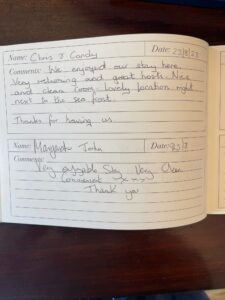 Name: Chris & Candy Date: 23/8/23
Comments: We enjoyed our stay here.
Very welcoming and great hosts. Nice
and clean room, lovely location right
next to the sea front.
Thanks for having us
Name: Margaret Date:
Comments:
Very enjoyable Stay Very Clean
Convenient
Thank you